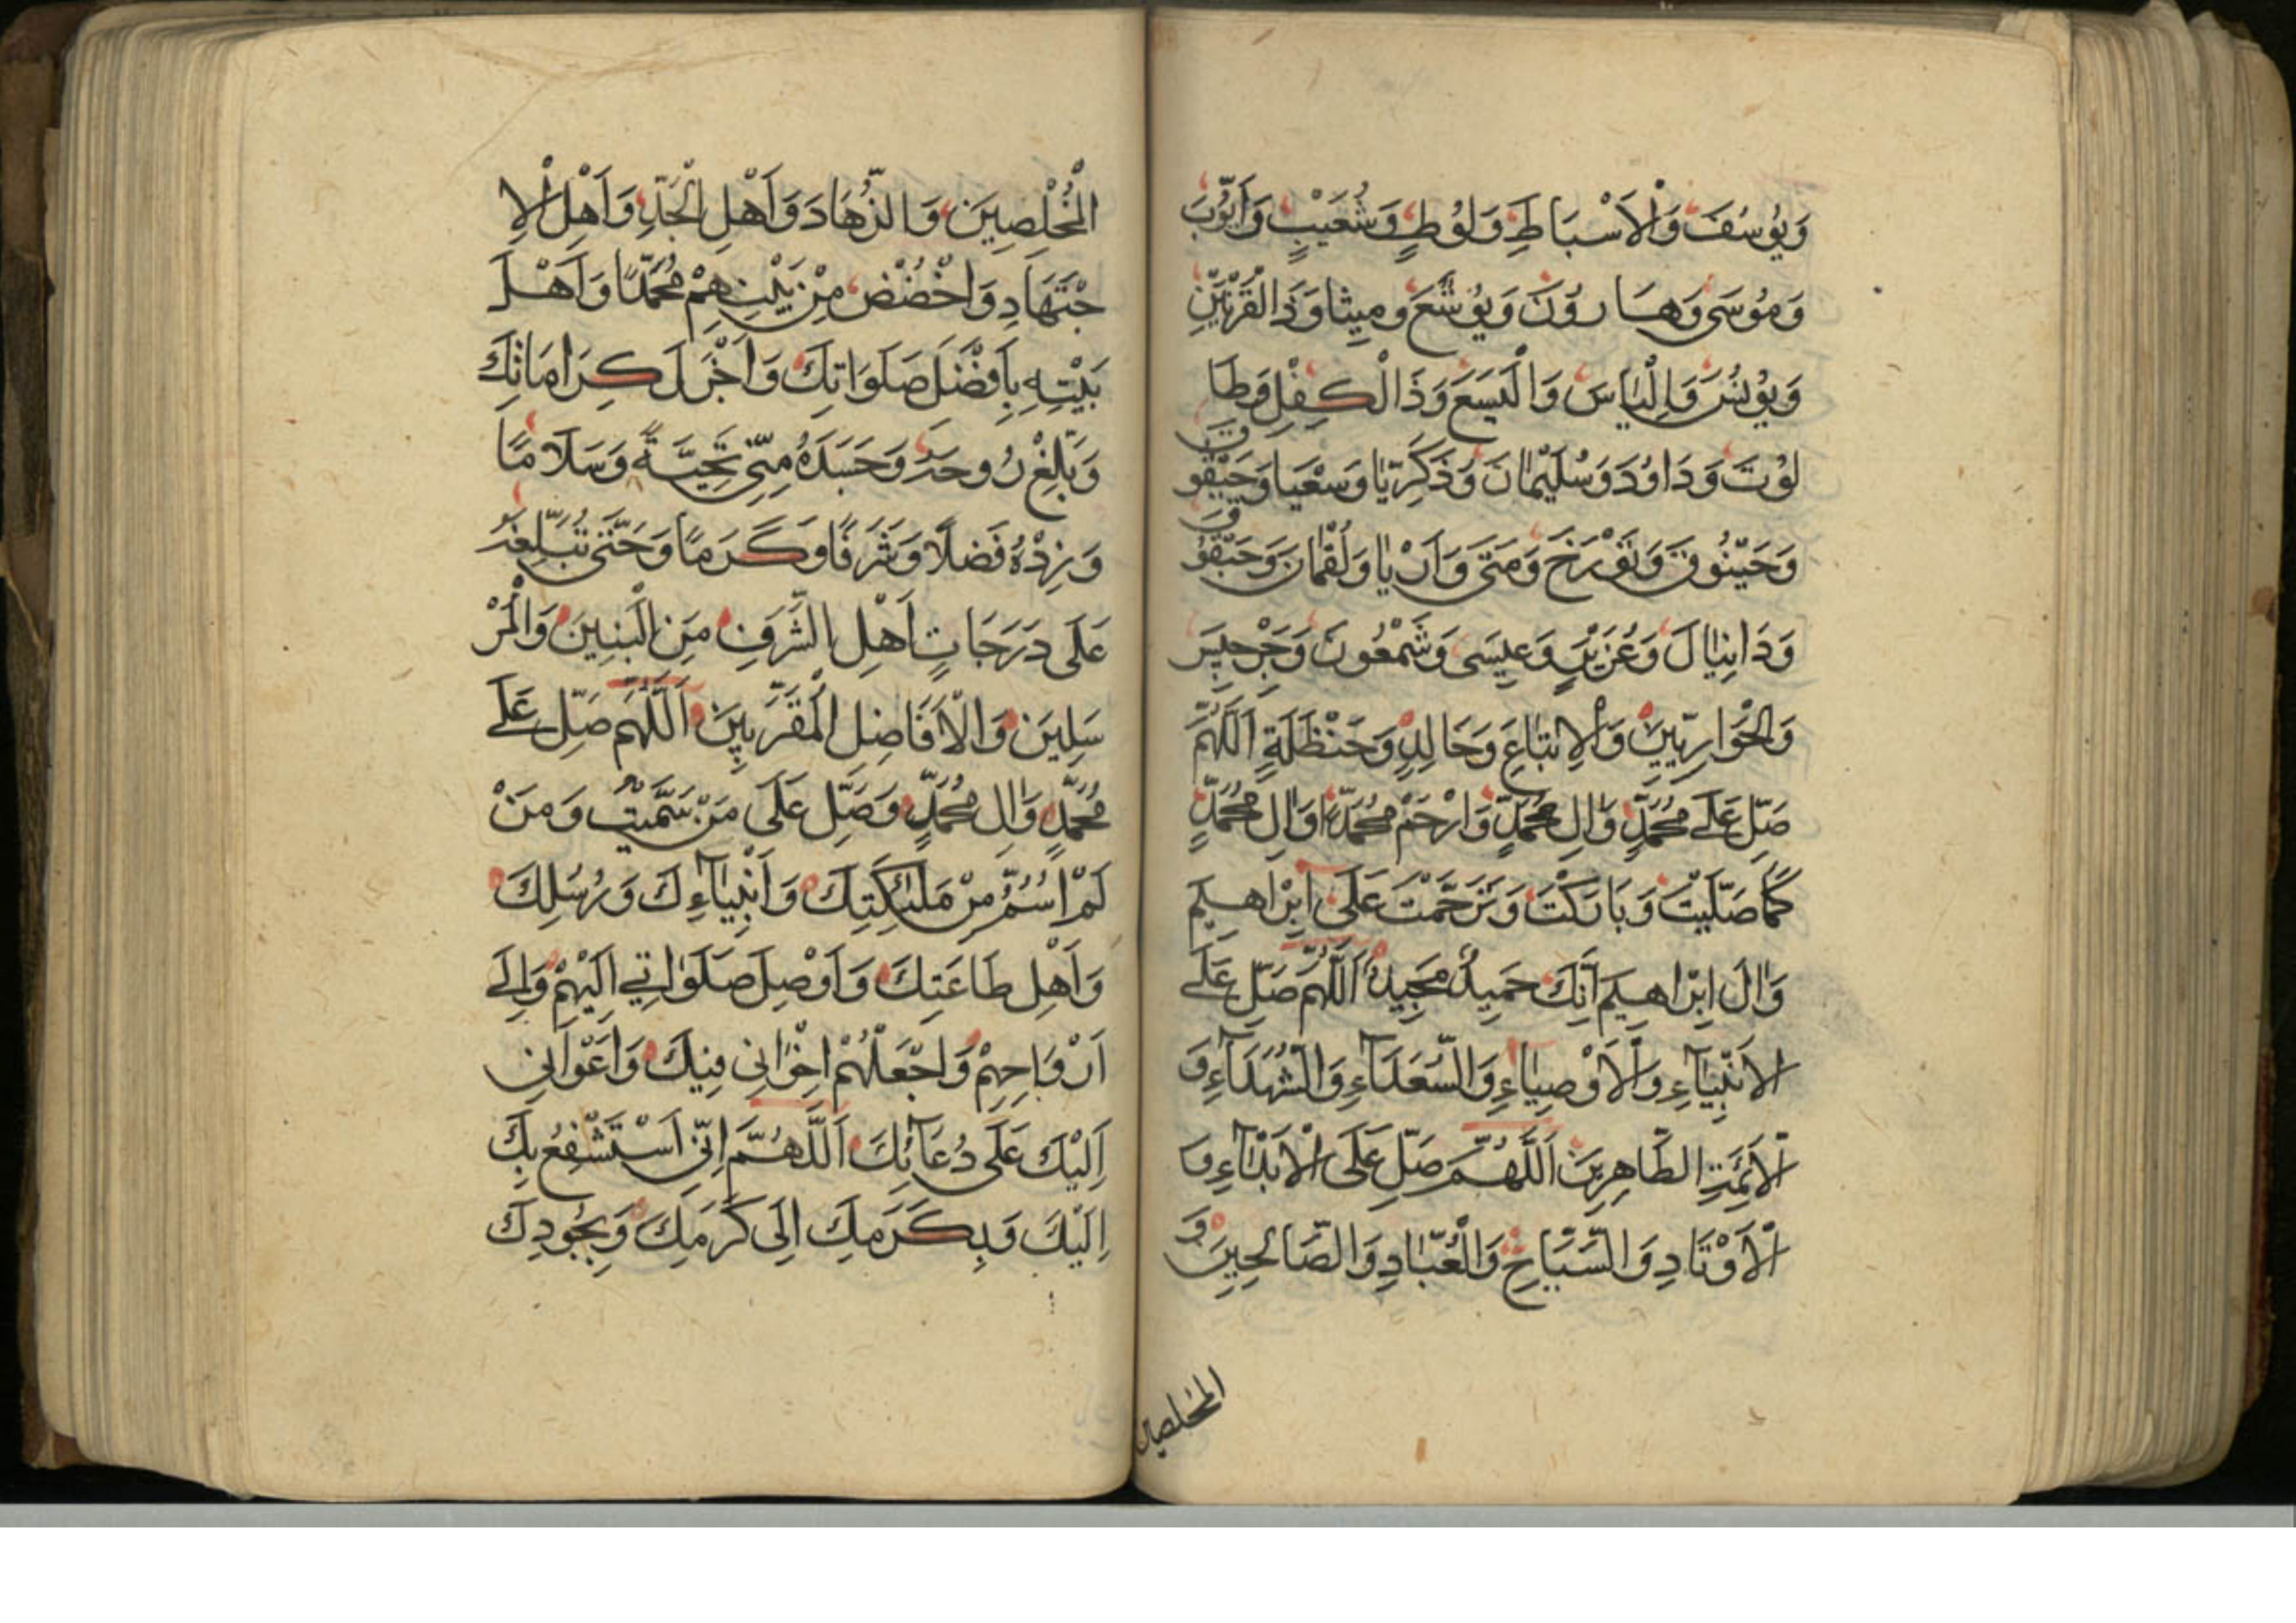 وَيُوسُفَ وَالْاَسْبَاطِ وَلُوطٍ وَشُعَيْبٍ وَاَيُّوبَ
وَمُوسَى وَهَارُوْنَ وَيُوْشَعَ وَمِيشَا وَذَالْقَرْنَيْنِ
وَيُوْنُسَ وَاِلْيَاسَ وَالْيَسَعَ وَذَالْكِفْلِ وَطَا
لُوْتَ وَدَاوُدَ وَسُلَيْمَانَ وَذَكَرِيَّا وَسَعْيَا وَحَيْقُو
وَمَتَى وَاَرْيَا وَلُقْمَانَ وَحَيْقُوقَ
وَدَانِيَالَ وَعُزَيْرٍ وَعِيسَى وَشَمْعُونَ وَجَرْجِيسَ
وَالْحَوَارِيّيِنَ وَالْاِتْبَاعِ وَخَالِدٍ وَحَنْظَلَةِ اَللّٰهُمَّ
صَلِّ عَلَى مُحَمَّدٍ وَاٰلِ مُحَمَّدٍ وَارْحَمْ مُحَمَّدًا وَاٰلِ مُحَمَّدٍ
كَمَا صَلَّيْتَ وَبَارَكْتَ وَتَرَحَّمْتَ عَلَى اِبْرَاهِيمَ
وَاٰلَ اِبْرَاهِيمَ اَنَّكَ حَمِيدٌ مَجِيدٌ اَللّٰهُمَّ صَلِّ عَلَى
الْاَنْبِيَآءِ وَالْاَوْصِيَاءِ وَالسُّعَدَآءِ وَالشُّهَدَآءِ وَ
الْاَئِمَّتِ الطَّاهِرِينَ اَللّٰهُمَّ صَلِّ عَلَى الْاَبْدَآءِ وَا
الْاَوْتَادِ وَالسَّيَّاحِ وَالْعُبَّادِ وَالصَّالِحِينَ وَ
المخلصين
الْمُخْلِصِيَنَ وَالزُّهَادَ وَاَهْلِ الْجَدِّ وَاَهْلِ الْاِ
جْتَهَادِ وَاخْصُصْ مِنْ بَيْنِهِمْ مُحَمَّدًا وَاَهْلَ
بَيْتِهِ بِاَفْضَلَ صَلَوَاتِكَ وَاَجْزَلَ كِرَامَاتِكَ
وَبَلِّغْ رُوحَهُ وَجَسَدَهُ مِنِّي تَحِيَّةً وَسَلَامًا
وَزِدْهُ فَضلًا وَشَرَفًا وَكَرَمًا وَحَتَّى تُبَلِّغَهُ
عَلَى دَرَجَاتٍ اَهْلِ الشَّرَفِ مِنَ الْبَنِيينَ وَالْمُرْ
سَلِينَ وَالْاَفَاضِلِ الْمُقَرَّبِينَ اَللّٰهُمَّ صَلِّ عَلَى
مُحَمَّدٍ وَاٰلِ مُحَمَّدٍ وَصَلِّ عَلَى مَنْ سَمَّيْتُ وَمَنْ
لَمْ اُسَمِّ مِنْ مَلٰئِكَتِكَ وَاَنْبِيَآءِكَ وَرُسُلِكَ
وَاَهْلِ طَاعَتِكَ وَاَوْصِلَ صَلَوٰاتِي اِلَيْهِمْ وَاِلَى
اَرْوَاحِهِمْ وَاجْعَلْهُمْ اِخْوَانِي فِيكَ وَاَعْوَانِي
اِلَيْكَ عَلَى دُعَآئِكَ اَللّٰهُمَّ اِنِّي اَسْتَشْفِعُ بِكَ
اِلَيْكَ وَبِكَرَمِكِ اِلَى كَرَمِكَ وَبِجُودِكَ